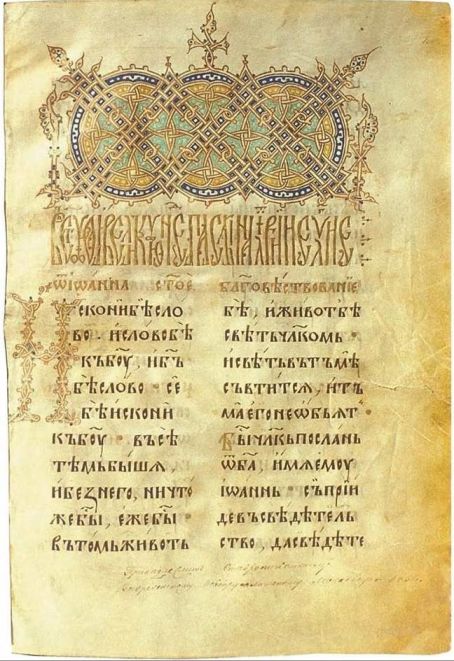 Ѿ їѡанна ст҃ое благовѣствованїе
Искони бѣсло
во · исловобѣ
къб҃оу , иб҃ъ
бѣслово · се
бѣискони
къб҃оу · въсѣ
тѣмьбышѧ
ибезнего, ничто
жебы҇, ежебы҇
вътомьживоть
бѣ, иживотбѣ
свѣтъчл҃комь ·
исвѣтъвътъмѣ
съвтитсѧ , итъ
маегонеѡбьѧт
Бы҇чл҃къпосланъ
ѿб҃а , имѧемоу
їѡаннь · съпрїи
девъсвѣдѣтель
ство , дасвѣдѣте